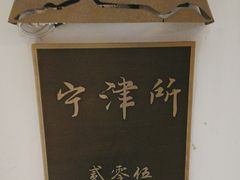 宁津所
贰零伍